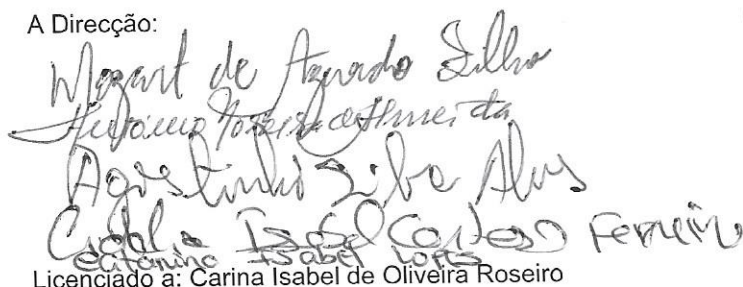 A Direcção:
Mozart de Azevedo Filho
António Moreira de Almeida
Agostinho Silva Alves
Isabel Cardoso Ferreira
Catarina Isabel Lopes
Licenciado a: Carina Isabel de Oliveira Roseiro